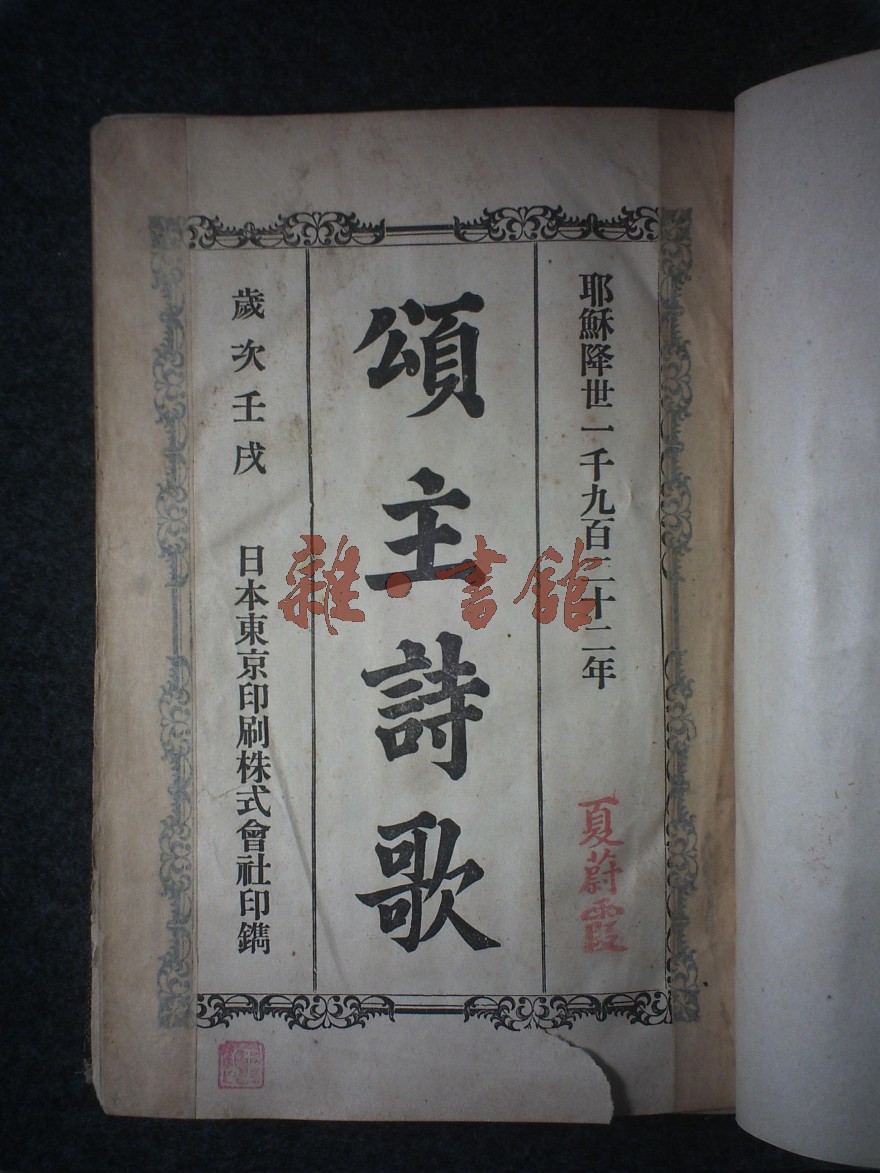 耶穌降世一千九百二十二年
夏蔚霞
頌主詩歌
歲次壬戌
日本東京印刷株式會社印鐫
雜·書館